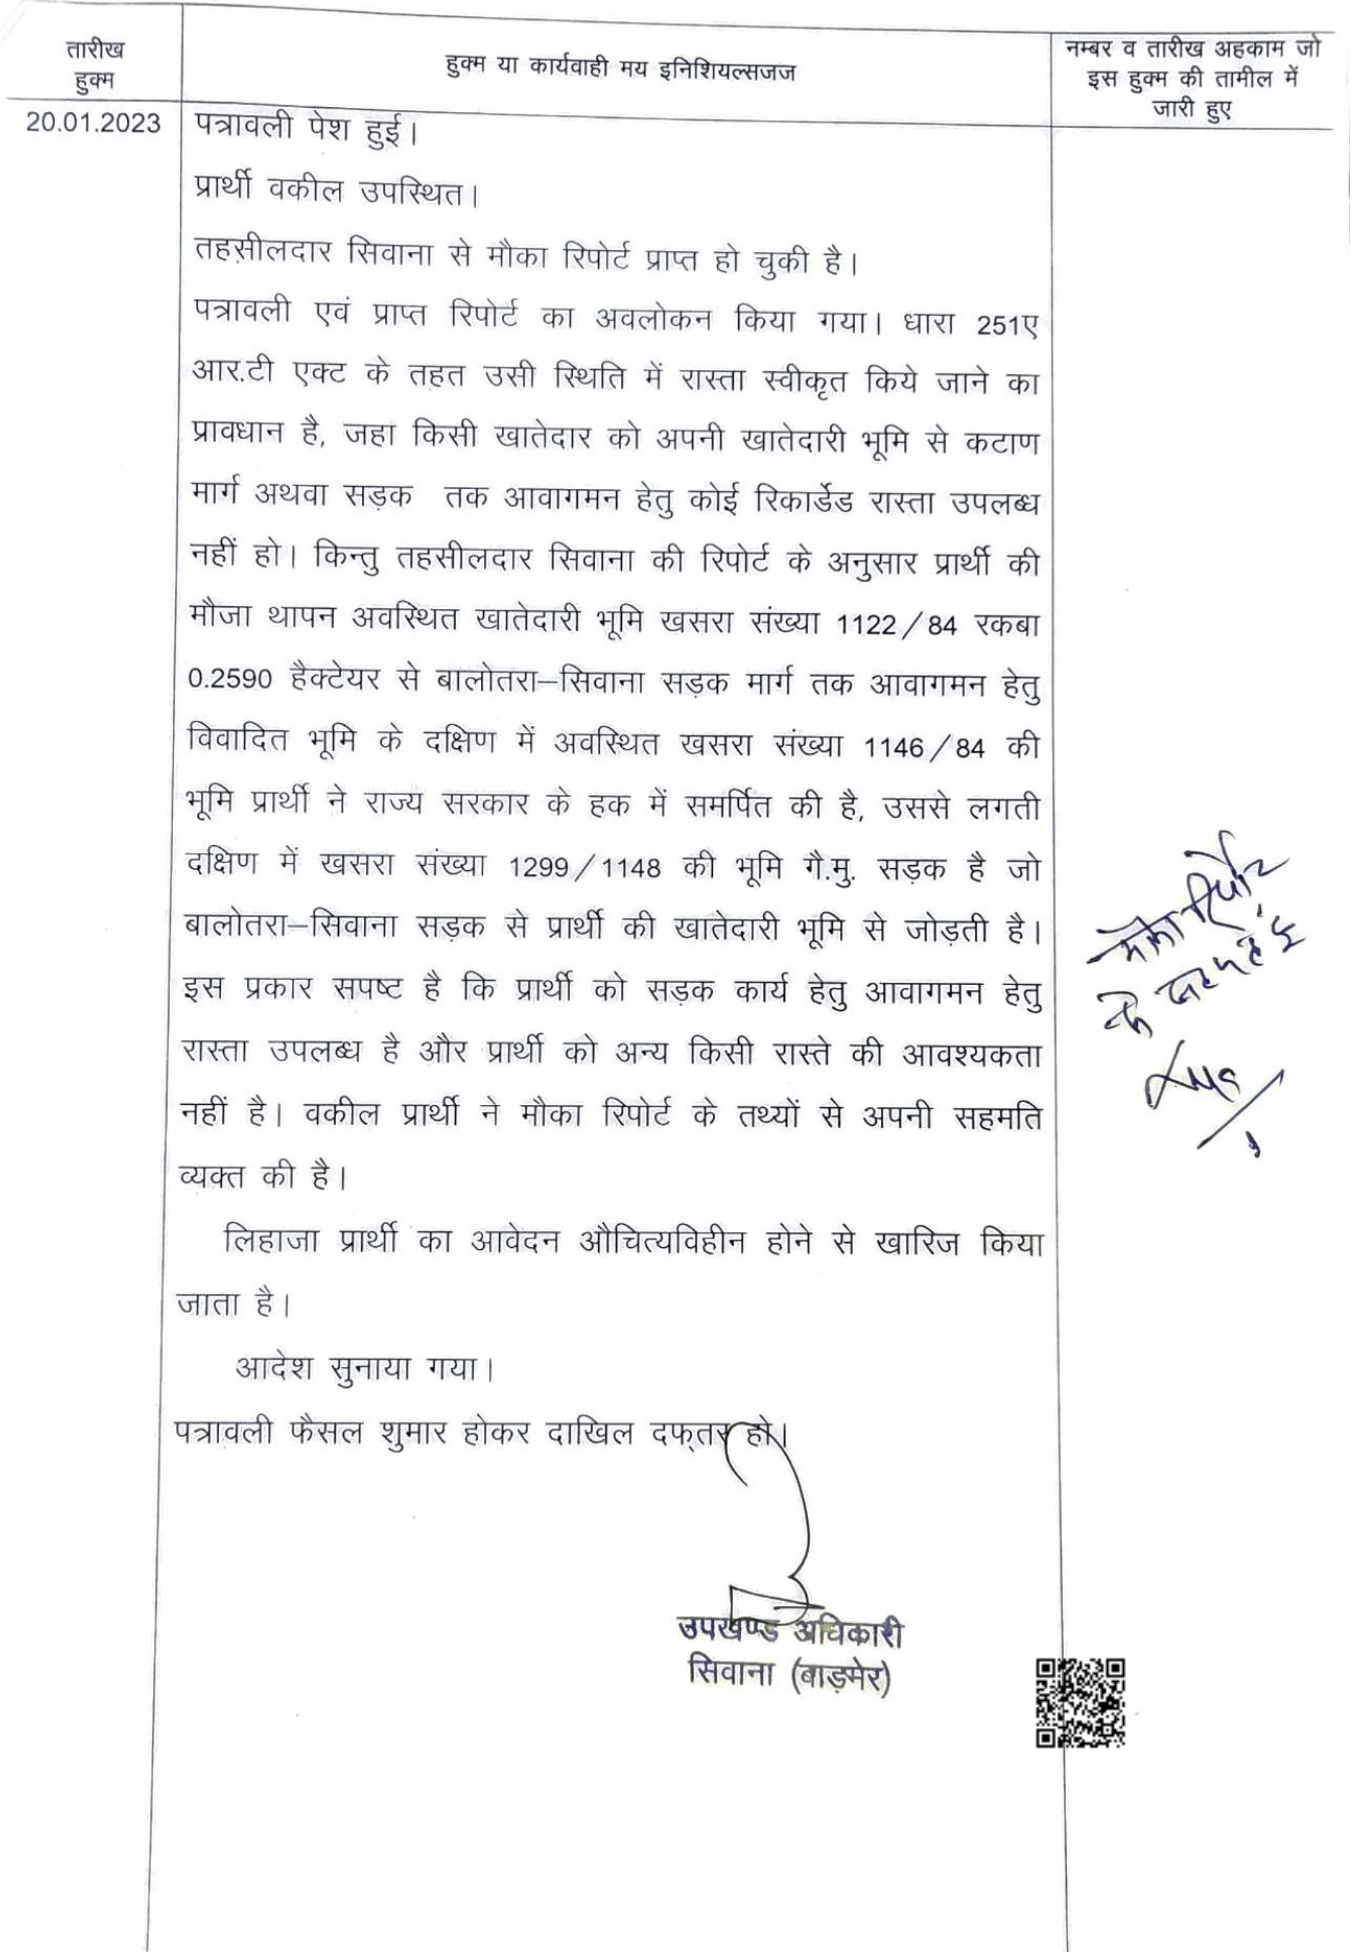 तारीख
हुक्म
हुक्म या कार्यवाही मय इनिशियल्सजज
नम्बर व तारीख अहकाम जो
इस हुक्म की तामील में
जारी हुए
20.01.2023
पत्रावली पेश हुई।
प्रार्थी वकील उपस्थित।
तहसीलदार सिवाना से मौका रिपोर्ट प्राप्त हो चुकी है।
पत्रावली एवं प्राप्त रिपोर्ट का अवलोकन किया गया। धारा 251ए
आर.टी एक्ट के तहत उसी स्थिति में रास्ता स्वीकृत किये जाने का
प्रावधान है, जहा किसी खातेदार को अपनी खातेदारी भूमि से कटाण
मार्ग अथवा सड़क तक आवागमन हेतु कोई रिकार्डेड रास्ता उपलब्ध
नहीं हो। किन्तु तहसीलदार सिवाना की रिपोर्ट के अनुसार प्रार्थी की
मौजा थापन अवस्थित खातेदारी भूमि खसरा संख्या 1122/84 रकबा
0.2590 हैक्टेयर से बालोतरा–सिवाना सड़क मार्ग तक आवागमन हेतु
विवादित भूमि के दक्षिण में अवस्थित खसरा संख्या 1146/84 की
भूमि प्रार्थी ने राज्य सरकार के हक में समर्पित की है, उससे लगती
दक्षिण में खसरा संख्या 1299/1148 की भूमि गै.मु. सड़क है जो
बालोतरा–सिवाना सड़क से प्रार्थी की खातेदारी भूमि से जोड़ती है।
इस प्रकार सपष्ट है कि प्रार्थी को सड़क कार्य हेतु आवागमन हेतु
रास्ता उपलब्ध है और प्रार्थी को अन्य किसी रास्ते की आवश्यकता
नहीं है। वकील प्रार्थी ने मौका रिपोर्ट के तथ्यों से अपनी सहमति
व्यक्त की है।
लिहाजा प्रार्थी का आवेदन औचित्यविहीन होने से खारिज किया
जाता है।
आदेश सुनाया गया।
पत्रावली फैसल शुमार होकर दाखिल दफ्तर हो।
उपखण्ड अधिकारी
सिवाना (बाड़मेर)
मौका रिपोर्ट